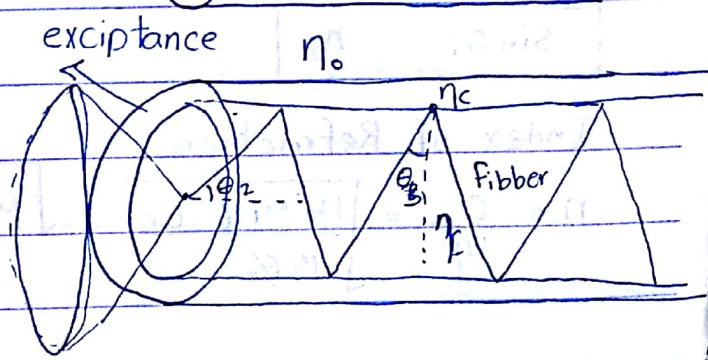 exciptance
η₀
ηc
θ₂
θ₃
Fibber
ηf